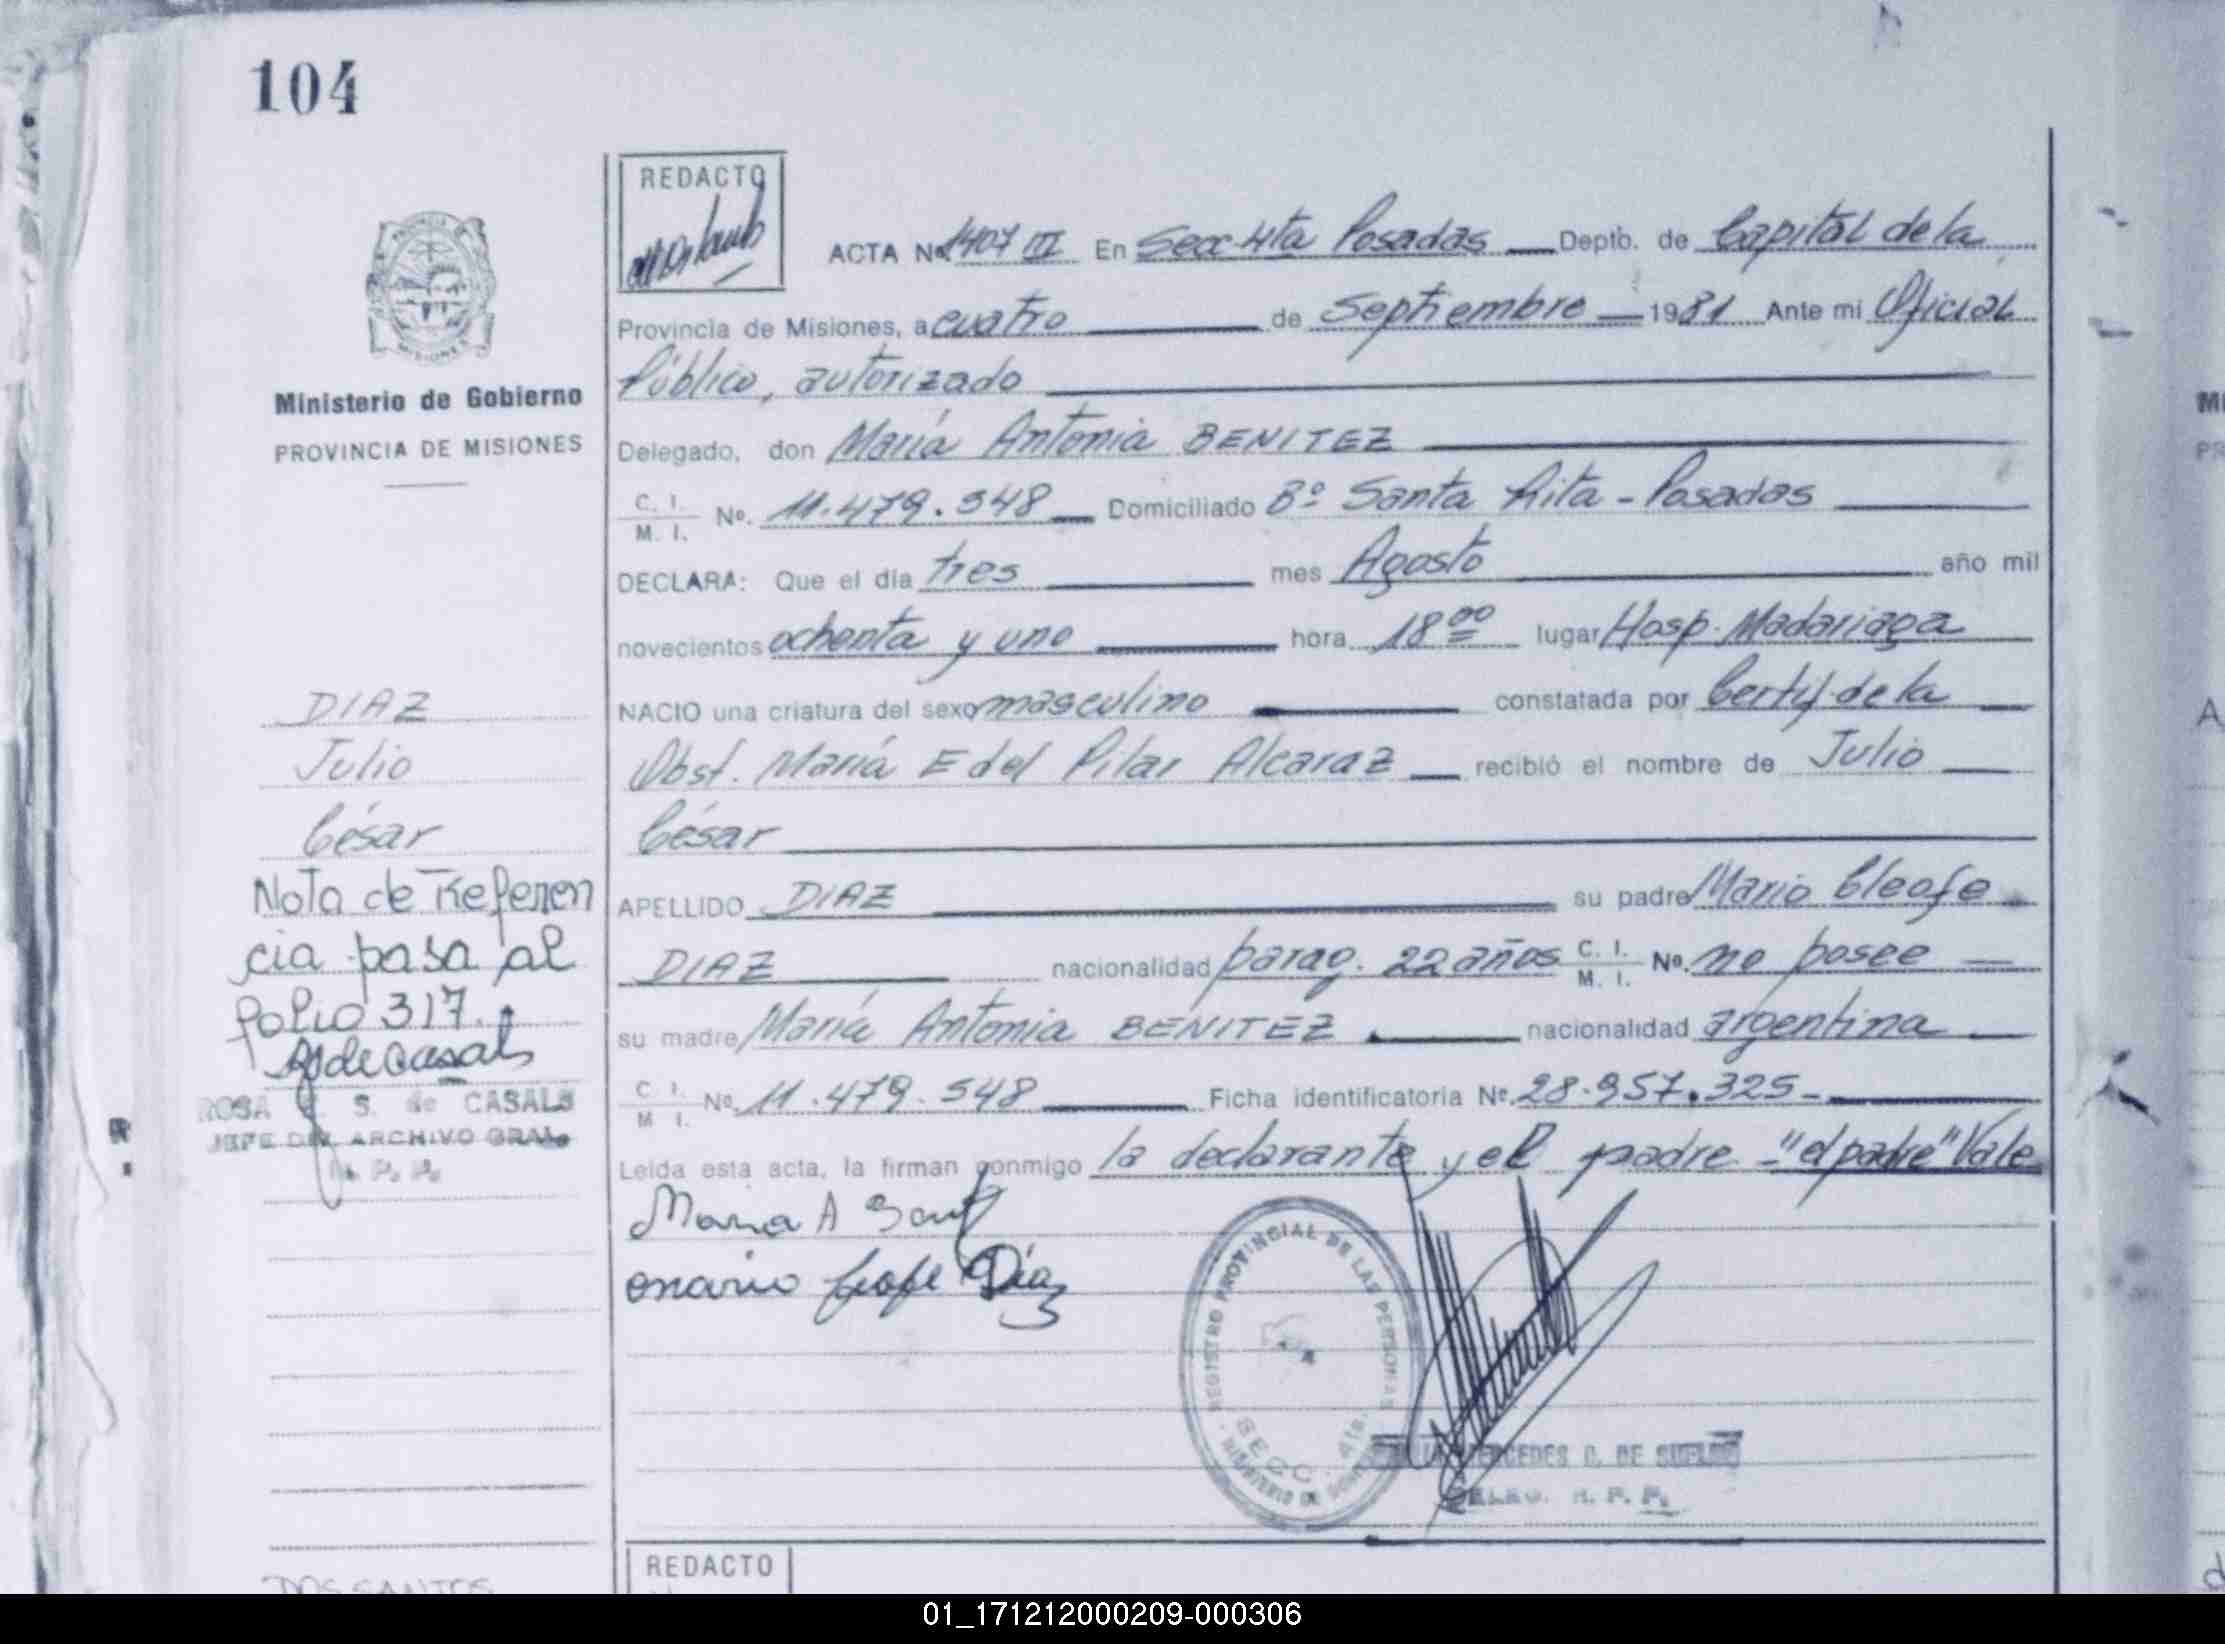 104
REDACTO
ACTA No. 1407 III En Secc 4ta Posadas Depto. de Capital de la
Provincia de Misiones, a cuatro de Septiembre 1981 Ante mi Oficial
Público, autorizado
Ministerio de Gobierno
PROVINCIA DE MISIONES
Delegado, don María Antonia BENITEZ
C. I.
M. I. No. 11.479.548 Domiciliado Bº Santa Rita - Posadas
DECLARA: Que el día tres mes Agosto año mil
novecientos ochenta y uno hora 18 00 lugar Hosp. Madariaga
NACIO una criatura del sexo masculino constatada por Certif. de la
Obst. María E del Pilar Alcaraz recibió el nombre de Julio
César
APELLIDO DIAZ su padre Mario Cleofe
DIAZ nacionalidad parag. 22 años C. I. M. I. No. no posee
su madre María Antonia BENITEZ nacionalidad argentina
C. I. M. I. No. 11.479.548 Ficha identificatoria No. 28.957.325-
Leida esta acta, la firman conmigo la declarante y el padre - "el padre" Vale
DIAZ
Julio
César
Nota de Referen
cia pasa al
folio 317.
ROSA S. de CASALS
JEFE DEL ARCHIVO GRAL.
R. P. P.
Maria A
mario Cleofe Díaz
REGISTRO PROVINCIAL DE LAS PERSONAS
SECC. 4ta.
MINISTERIO DE
MERCEDES
DELEG. R. P. P.
REDACTO
DOS SANTOS
01_171212000209-000306